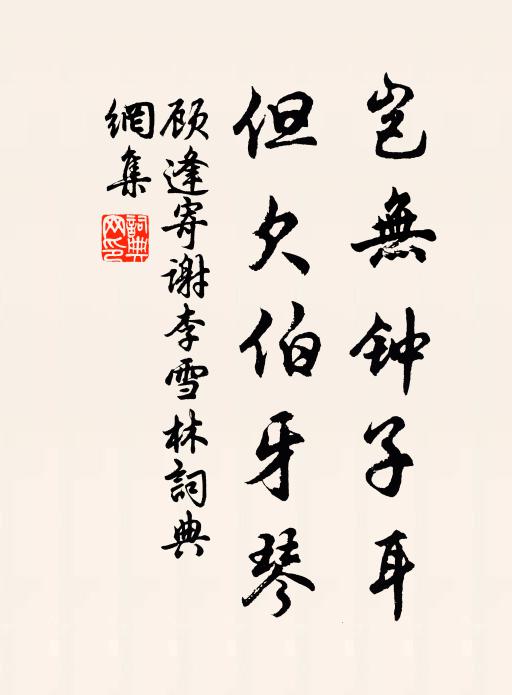 岂無钟子耳
但欠伯牙琴
顾逢寄谢李雪林詞典
網集
詞典
网印